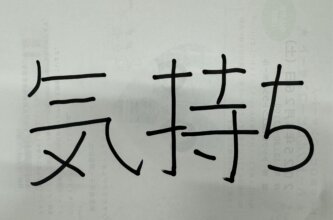 気持ち